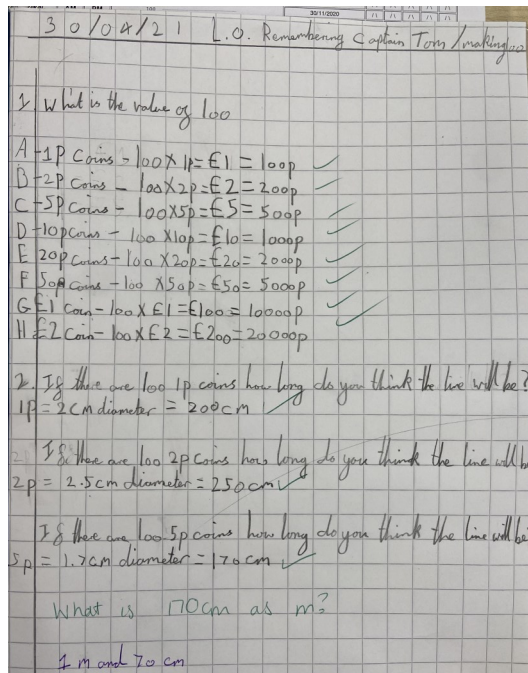 30/11/2020
30/04/21 L.O. Remembering Captain Tom/making 100
1 What is the value of 100
A-1p Coins-100X1p=£1=100p
B-2p Coins-100X2p=£2=200p
C-5p Coins-100X5p=£5=500p
D-10p coins-100X10p=£10=1000p
E 20p coins-100X20p=£20=2000p
F 50p coins-100X50p=£50=5000p
G£1 Coin-100X£1=£100=10000p
H£2 Coin-100X£2=£200=20000p
2. If there are 100 1p coins how long do you think the line will be?
1p=2cm diameter=200cm
If there are 100 2p coins how long do you think the line will b
2p=2.5cm diameter=250cm
If there are 100 5p coins how long do you think the line will be
5p=1.7cm diameter=170cm
What is 170cm as m?
1m and 70cm